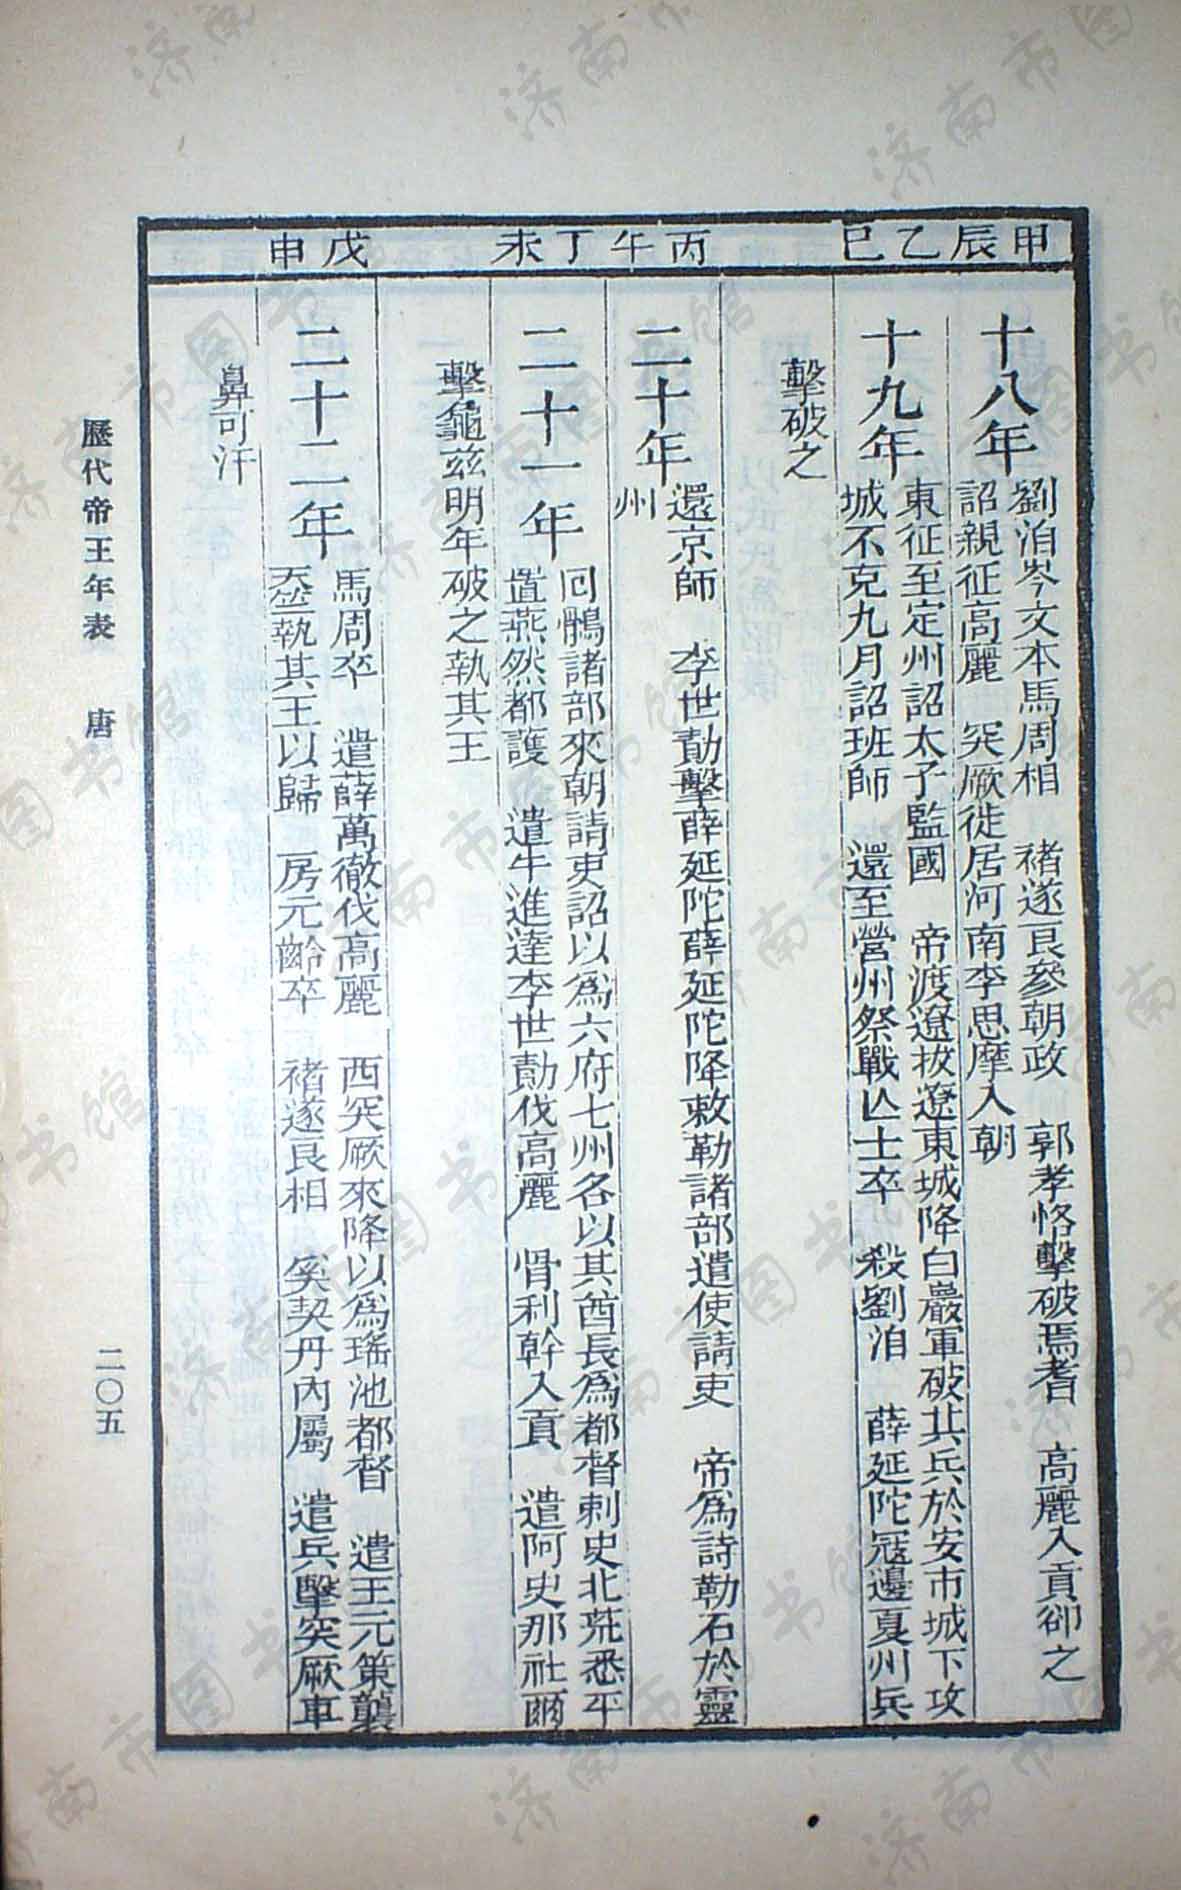 甲辰乙巳
丙午丁未
戊申
十八年
劉洎岑文本馬周相　褚遂良參朝政　郭孝恪擊破焉耆　高麗入貢卻之
詔親征高麗　突厥徙居河南李思摩入朝
十九年
東征至定州詔太子監國　帝渡遼拔遼東城降白巖軍破其兵於安市城下攻
城不克九月詔班師　還至營州祭戰亾士卒　殺劉洎　薛延陀寇邊夏州兵
擊破之
二十年
還京師　李世勣擊薛延陀薛延陀降敕勒諸部遣使請吏　帝爲詩勒石於靈
州
二十一年
回鶻諸部來朝請吏詔以爲六府七州各以其酋長爲都督刺史北荒悉平
置燕然都護　遣牛進達李世勣伐高麗　骨利幹入貢　遣阿史那社爾
擊龜茲明年破之執其王
二十二年
馬周卒　遣薛萬徹伐高麗　西突厥來降以爲瑤池都督　遣王元策襲
天竺執其王以歸　房元齡卒　褚遂良相　奚契丹內屬　遣兵擊突厥車
鼻可汗
歷代帝王年表　唐　二〇五
济南市图书馆